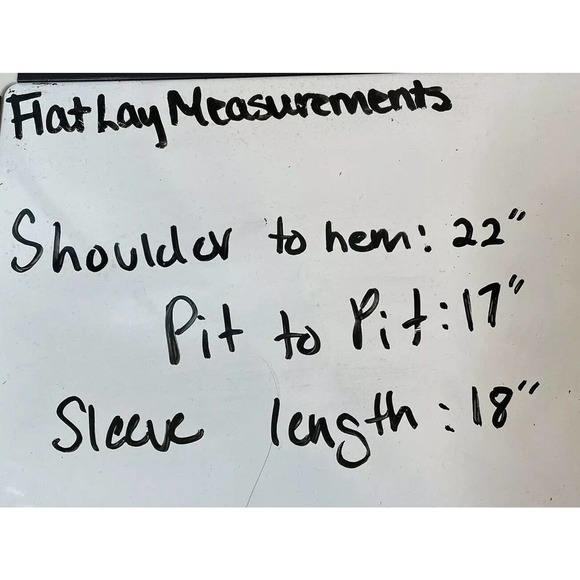 Flat Lay Measurements
Shoulder to hem: 22"
Pit to Pit: 17"
Sleeve length: 18"